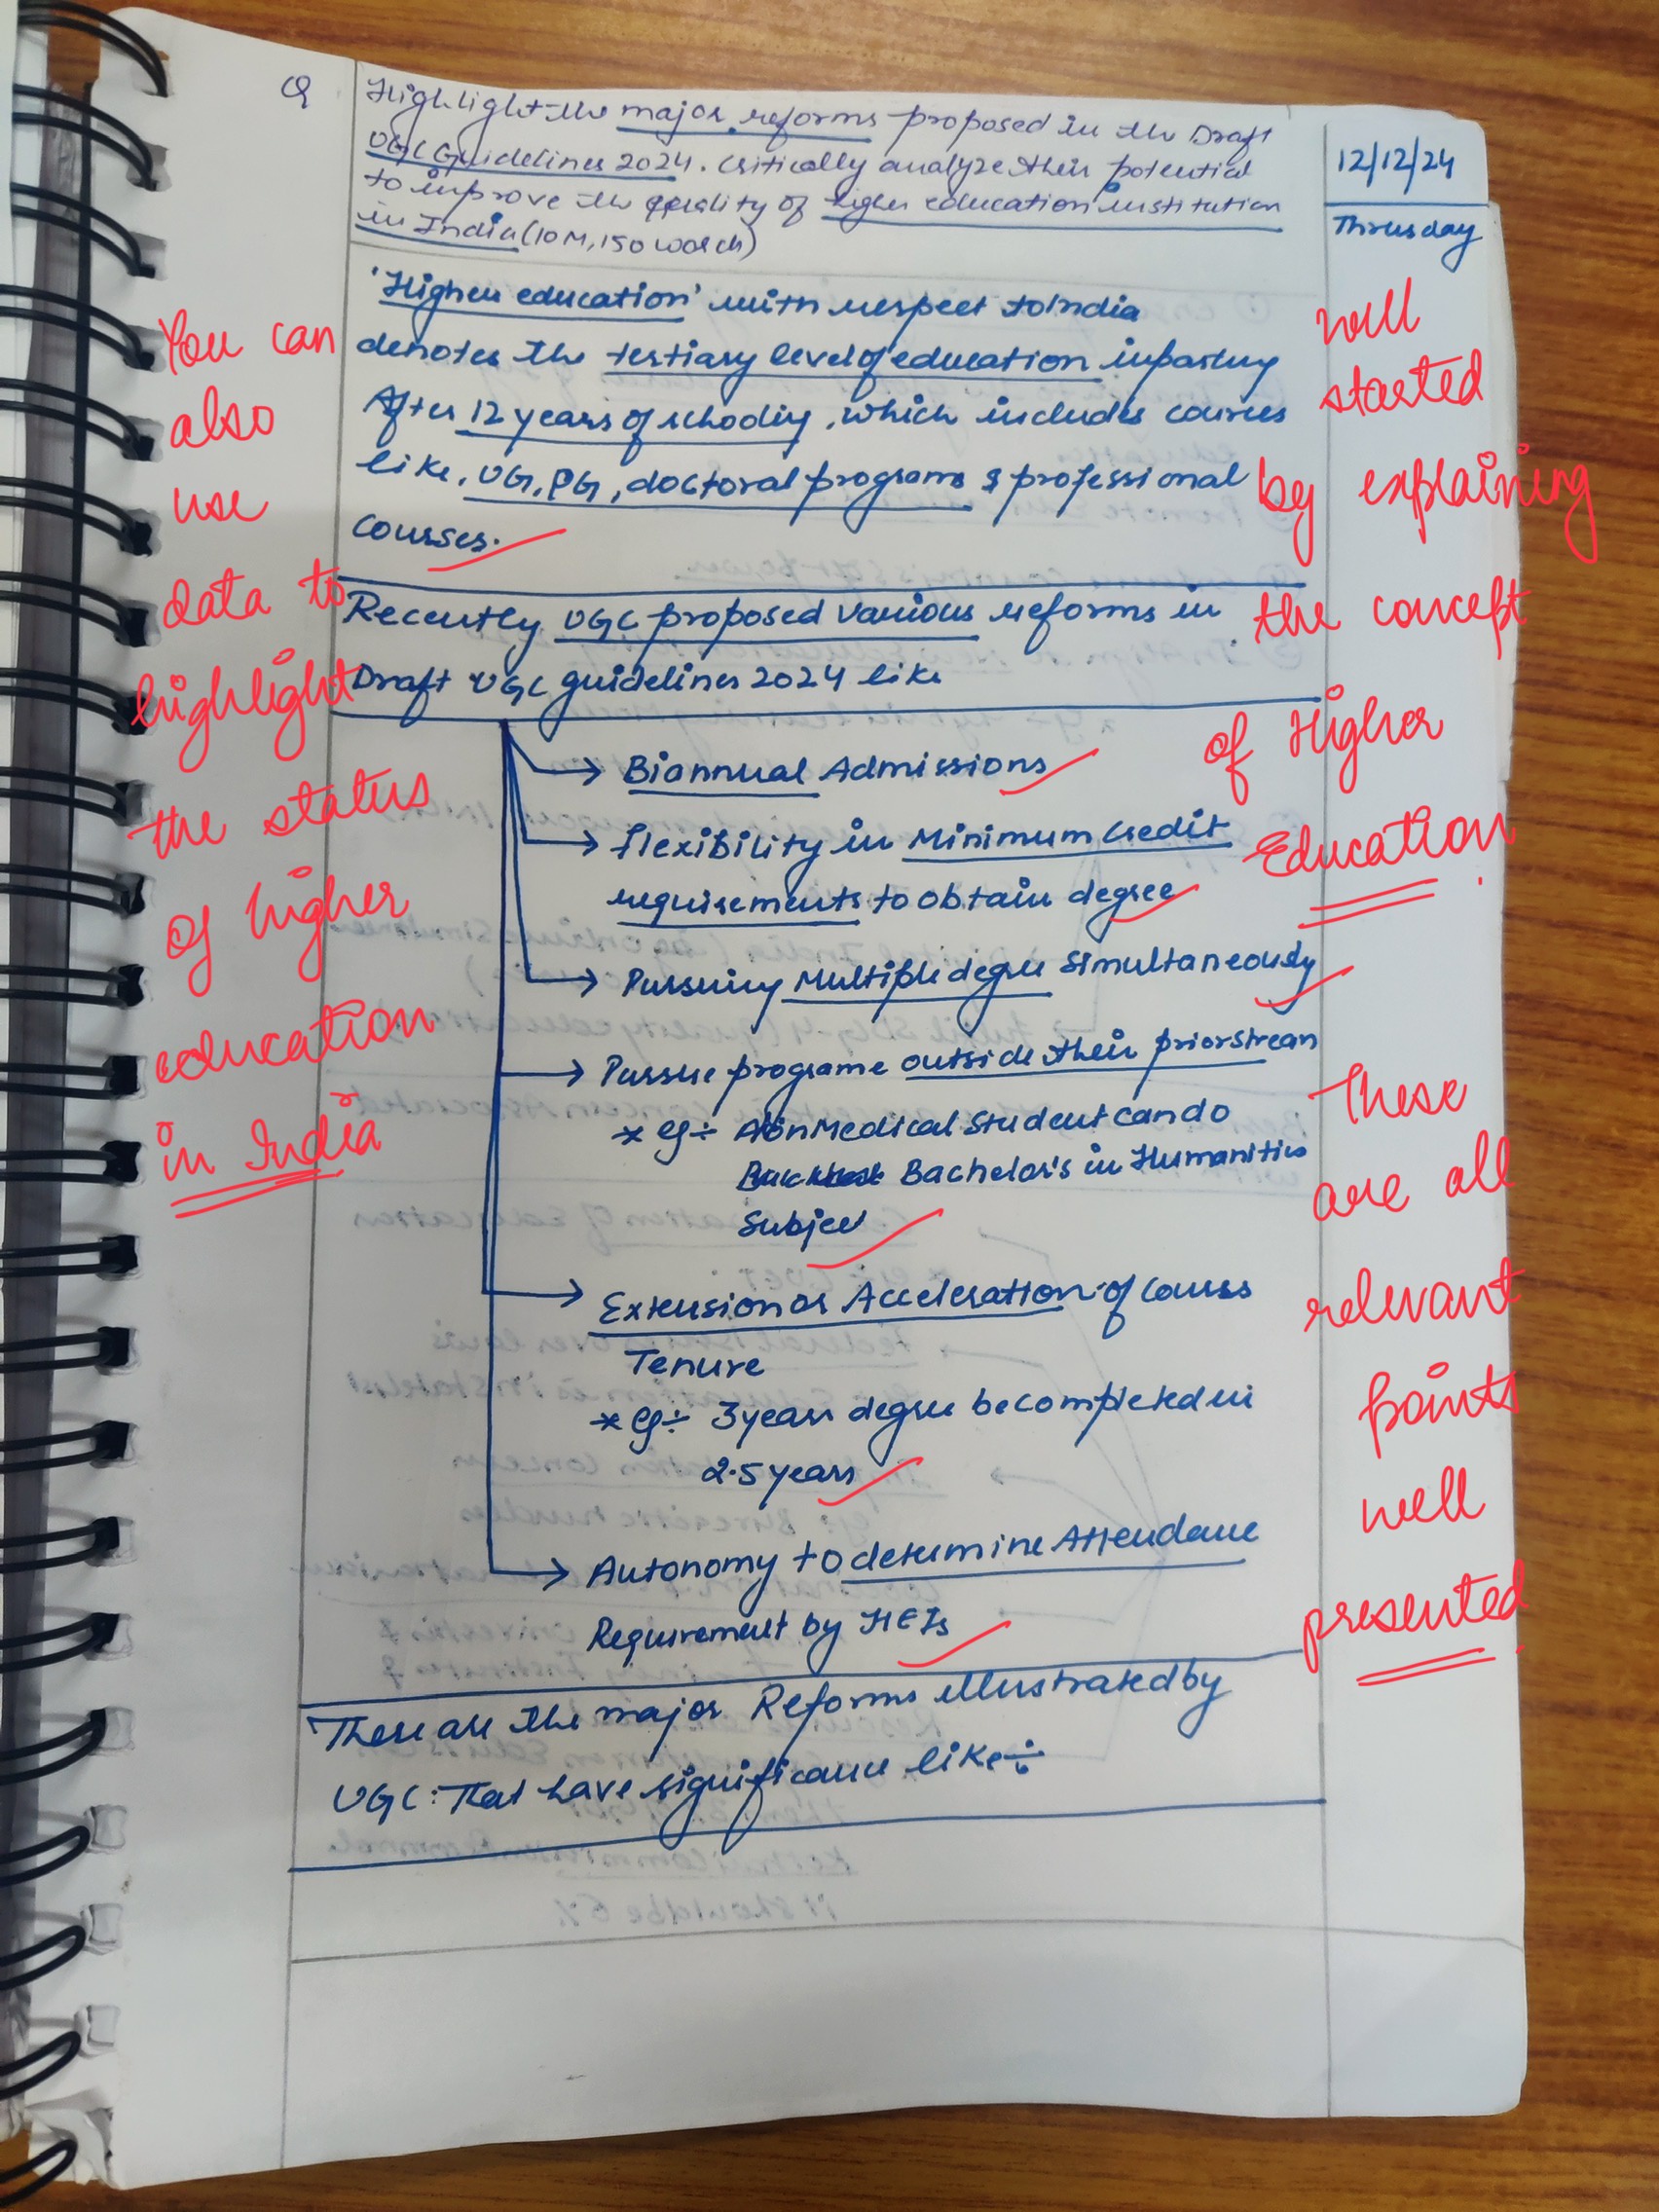 Q
Highlight the major reforms proposed in the Draft
UGC Guidelines 2024. Critically analyze their potential
to improve the quality of higher education institution
in India (10 M, 150 words)
12/12/24
Thrusday
'Higher education' with respect to India
denotes the tertiary level of education imparting
After 12 years of schooling, which includes courses
like, UG, PG, doctoral programs & professional
courses.
Recently UGC proposed various reforms in
Draft UGC guidelines 2024 like
→ Biannual Admissions
→ flexibility in Minimum Credit
requirements to obtain degree
→ Pursuing Multiple degree simultaneously
→ Pursue programe outside their prior stream
* eg÷ Non Medical Student can do
Bachelor's in Humanities
Subject
→ Extension or Acceleration of Course
Tenure
* eg÷ 3 years degree be completed in
2.5 years
→ Autonomy to determine Attendance
Requirement by HEIs
These are the major Reforms illustrated by
UGC. That have significance like÷
You can
also
use
data to
highlight
the status
of higher
education
in India
well
started
by explaining
the concept
of Higher
Education.
These
are all
relevant
points
well
presented.